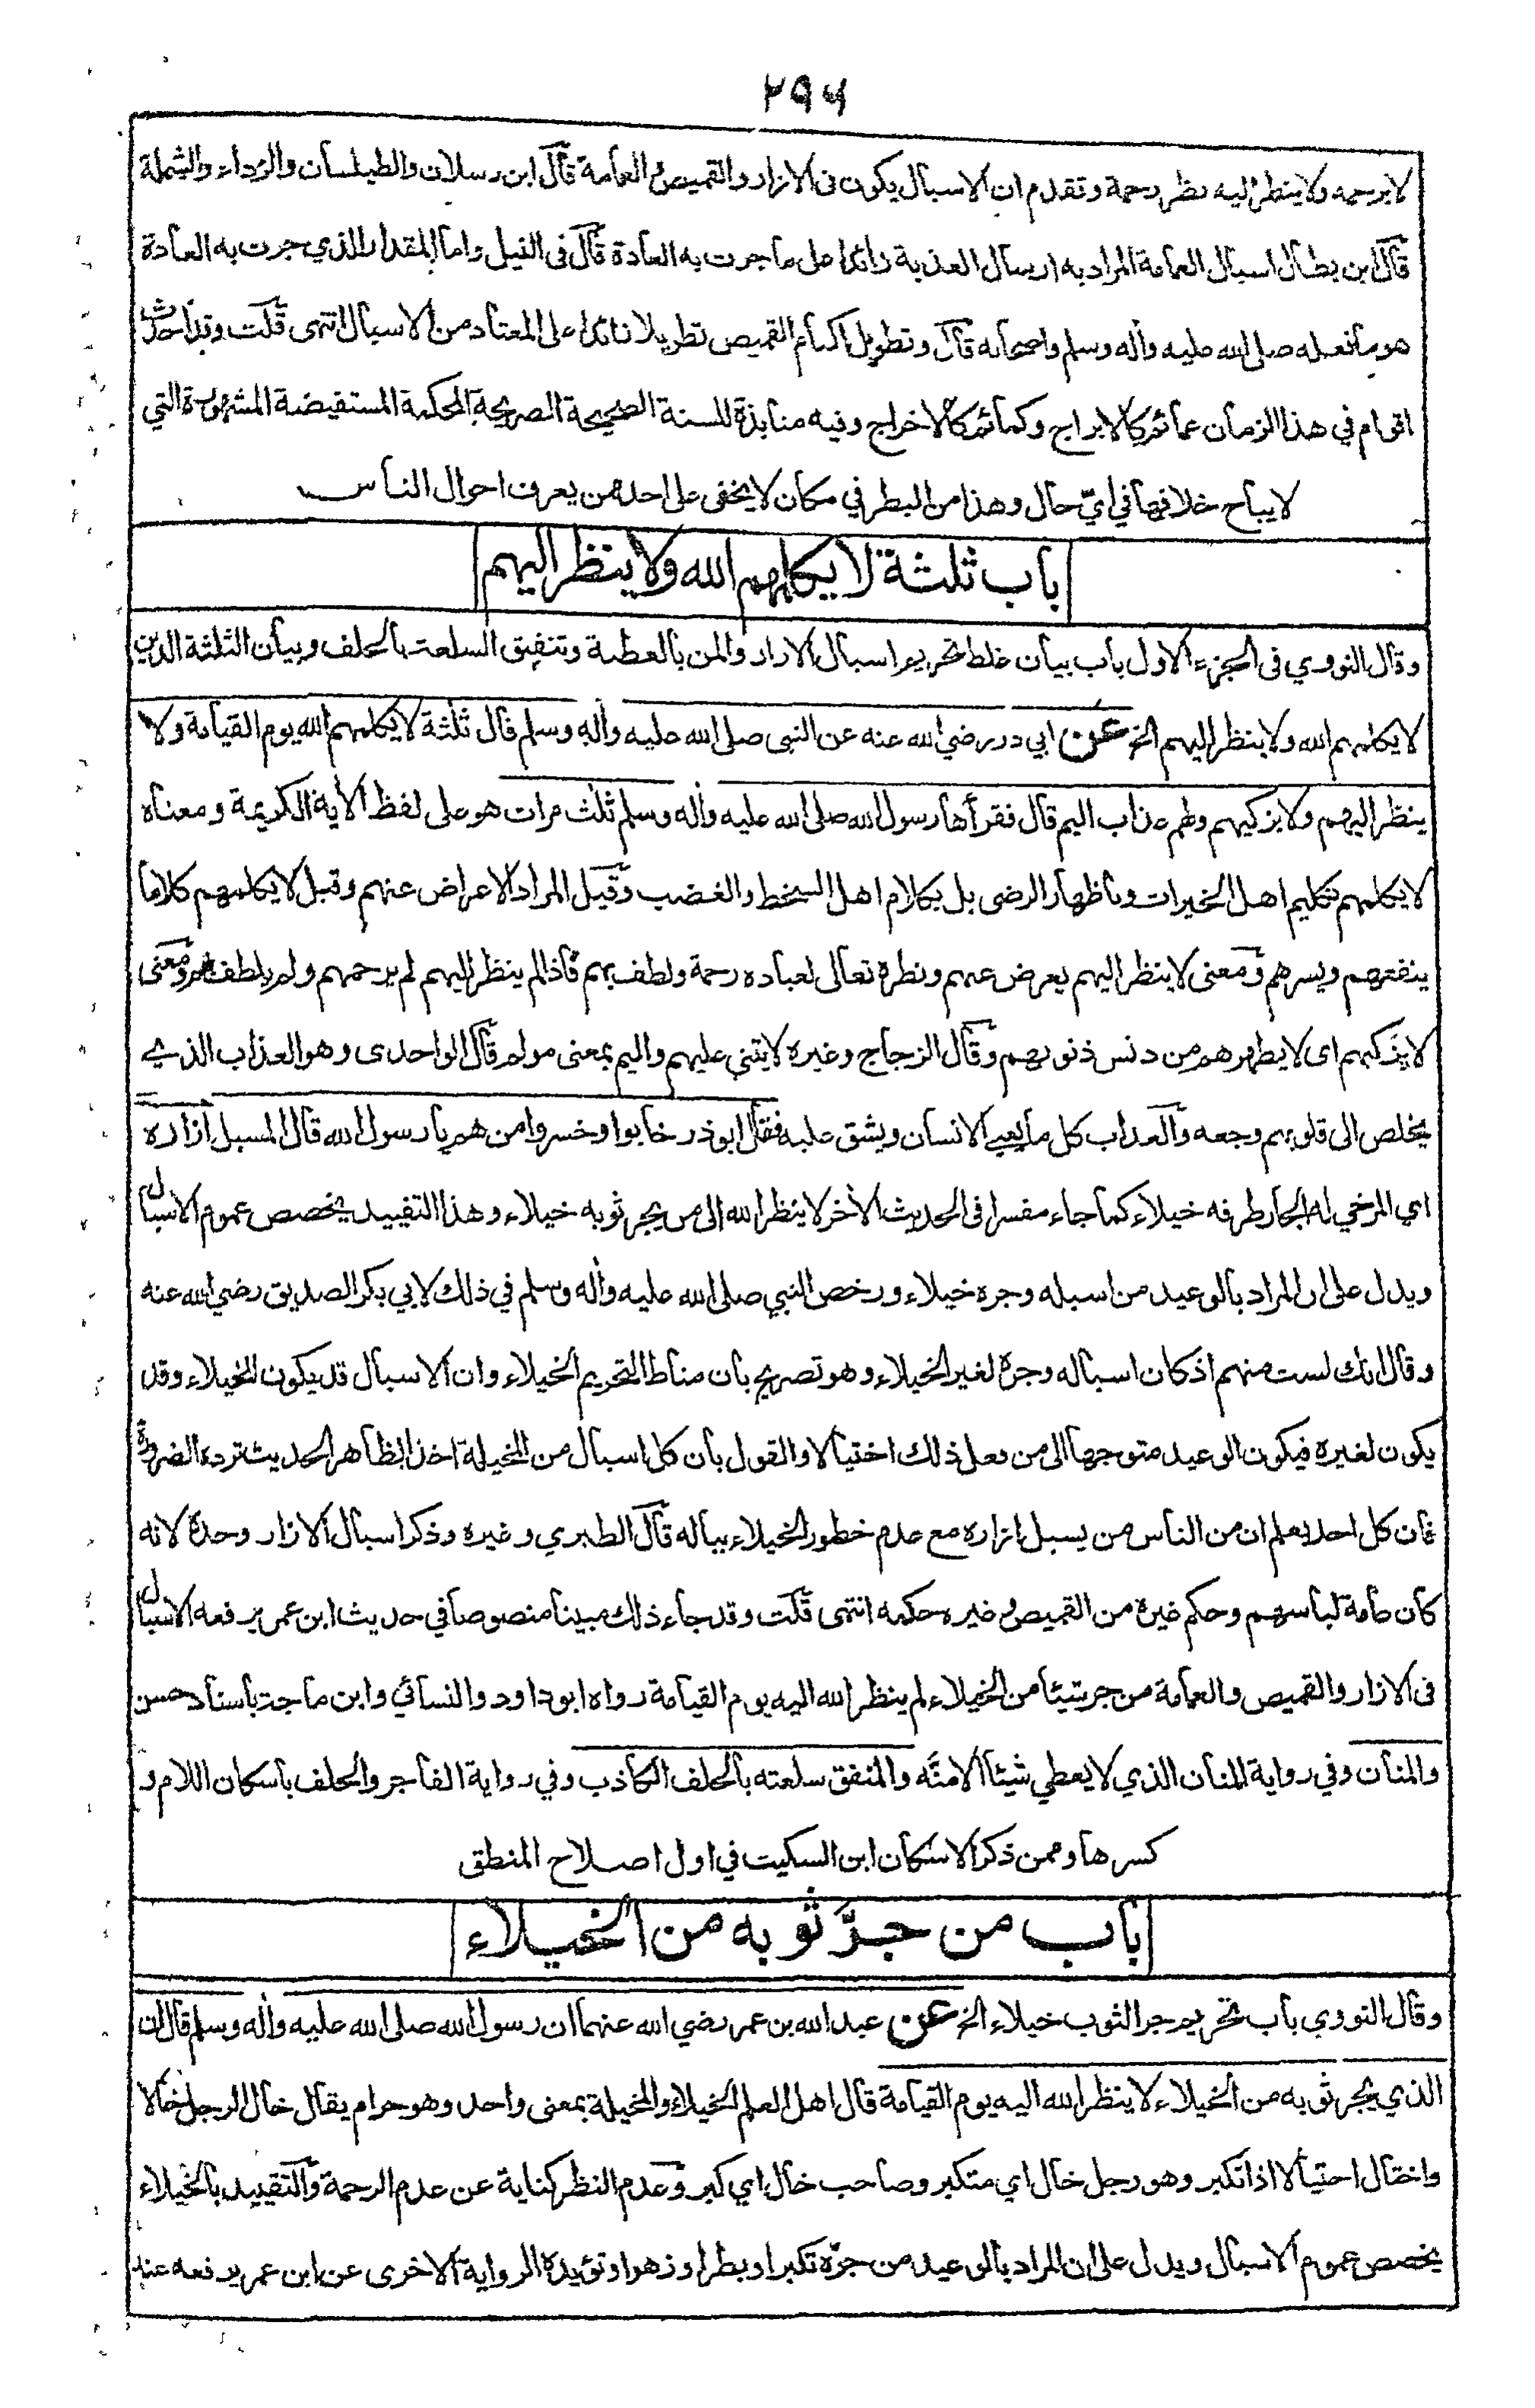 ٢٩٦
لا يرحمه ولا ينظر اليه نظر رحمة وتقدم ان الاسبال يكون فى الازار والقميص والعمامة قال ابن رسلان والطيلسان والرداء والشملة
قال ابن بطال اسبال العمامة المراد به ارسال العذبة زائدا على ما جرت به العادة قال فى النيل واما المقدار الذي جرت به العادة
هو ما فعله صلى الله عليه واله وسلم واصحابه قال وتطويل اكمام القميص تطويلا زائدا على المعتاد من الاسبال انتهى قلت وقد احدث
اقوام في هذا الزمان عمائم كالابراج وكمائم كالاخراج وفيه منابذة للسنة الصحيحة الصريحة المحكمة المستفيضة المشهورة التي
لا يباح خلافها في ايّ حال وهذا من البطر في مكان لا يخفى على احد ممن يعرف احوال الناس
باب ثلثة لا يكلمهم الله ولا ينظر اليهم
وقال النووي فى الجزء الاول باب بيان غلظ تحريم اسبال الازار والمن بالعطية وتنفيق السلعة بالحلف وبيان الثلثة الذين
لا يكلمهم الله ولا ينظر اليهم الخ عن ابي ذر رضي الله عنه عن النبى صلى الله عليه واله وسلم قال ثلثة لا يكلمهم الله يوم القيامة ولا
ينظر اليهم ولا يزكيهم ولهم عذاب اليم قال فقرأها رسول الله صلى الله عليه واله وسلم ثلث مرات هو على لفظ الأية الكريمة ومعناه
لا يكلمهم تكليم اهل الخيرات وباظهار الرضى بل بكلام اهل السخط والغضب وقيل المراد الاعراض عنهم وقيل لا يكلمهم كلاما
ينفعهم ويسرهم ومعنى لا ينظر اليهم يعرض عنهم ونظره تعالى لعباده رحمة ولطف بهم فاذا لم ينظر اليهم لم يرحمهم ولم يلطف بهم ومعنى
لا يزكيهم اى لا يطهرهم من دنس ذنوبهم وقال الزجاج وغيره لا يثني عليهم واليم بمعنى مولم قال الواحدى وهو العذاب الذي
يخلص الى قلوبهم وجعه والعذاب كل ما يعيي الانسان ويشق عليه فقال ابوذر خابوا وخسروا من هم يا رسول الله قال المسبل ازاره
اي المرخي له الجار طرفه خيلاء كما جاء مفسرا فى الحديث الأخر لا ينظر الله الى من يجر ثوبه خيلاء وهذا التقييد يخصص عموم الاسبال
ويدل على ان المراد بالوعيد من اسبله وجره خيلاء ورخص النبي صلى الله عليه واله وسلم في ذلك لابي بكر الصديق رضي الله عنه
وقال انك لست منهم اذ كان اسباله وجره لغير الخيلاء وهو تصريح بان مناط التحريم الخيلاء وان الاسبال قد يكون للخيلاء وقد
يكون لغيره فيكون الوعيد متوجها الى من فعل ذلك اختيالا والقول بان كل اسبال من المخيلة اخذا بظاهر الحديث ترده الضرورة
فان كل احد يعلم ان من الناس من يسبل ازاره مع عدم خطور الخيلاء بباله قال الطبري وغيره وذكر اسبال الازار وحده لانه
كان عامة لباسهم وحكم غيره من القميص وغيره حكمه انتهى قلت وقد جاء ذلك مبينا منصوصا في حديث ابن عمر يرفعه الاسبال
فى الازار والقميص والعمامة من جر شيئا من الخيلاء لم ينظر الله اليه يوم القيامة رواه ابوداود والنسائي وابن ماجة باسناد حسن
والمنان وفي رواية المنان الذي لا يعطي شيئا الا منَّه والمنفق سلعته بالحلف الكاذب وفي رواية الفاجر والحلف باسكان اللام و
كسرها وممن ذكر الاسكان ابن السكيت في اول اصلاح المنطق
باب من جرَّ ثوبه من الخيلاء
وقال النووي باب تحريم جر الثوب خيلاء الخ عن عبد الله بن عمر رضي الله عنهما ان رسول الله صلى الله عليه واله وسلم قال ان
الذي يجر ثوبه من الخيلاء لا ينظر الله اليه يوم القيامة قال اهل العلم الخيلاء والمخيلة بمعنى واحد وهو حرام يقال خال الرجل خالا
واختال اختيالا اذا تكبر وهو رجل خال اي متكبر وصاحب خال اي كبر وعدم النظر كناية عن عدم الرحمة والتقييد بالخيلاء
يخصص عموم الاسبال ويدل على ان المراد بالوعيد من جرّه تكبرا وبطرا وزهوا وتؤيده الرواية الاخرى عن ابن عمر يرفعه عند